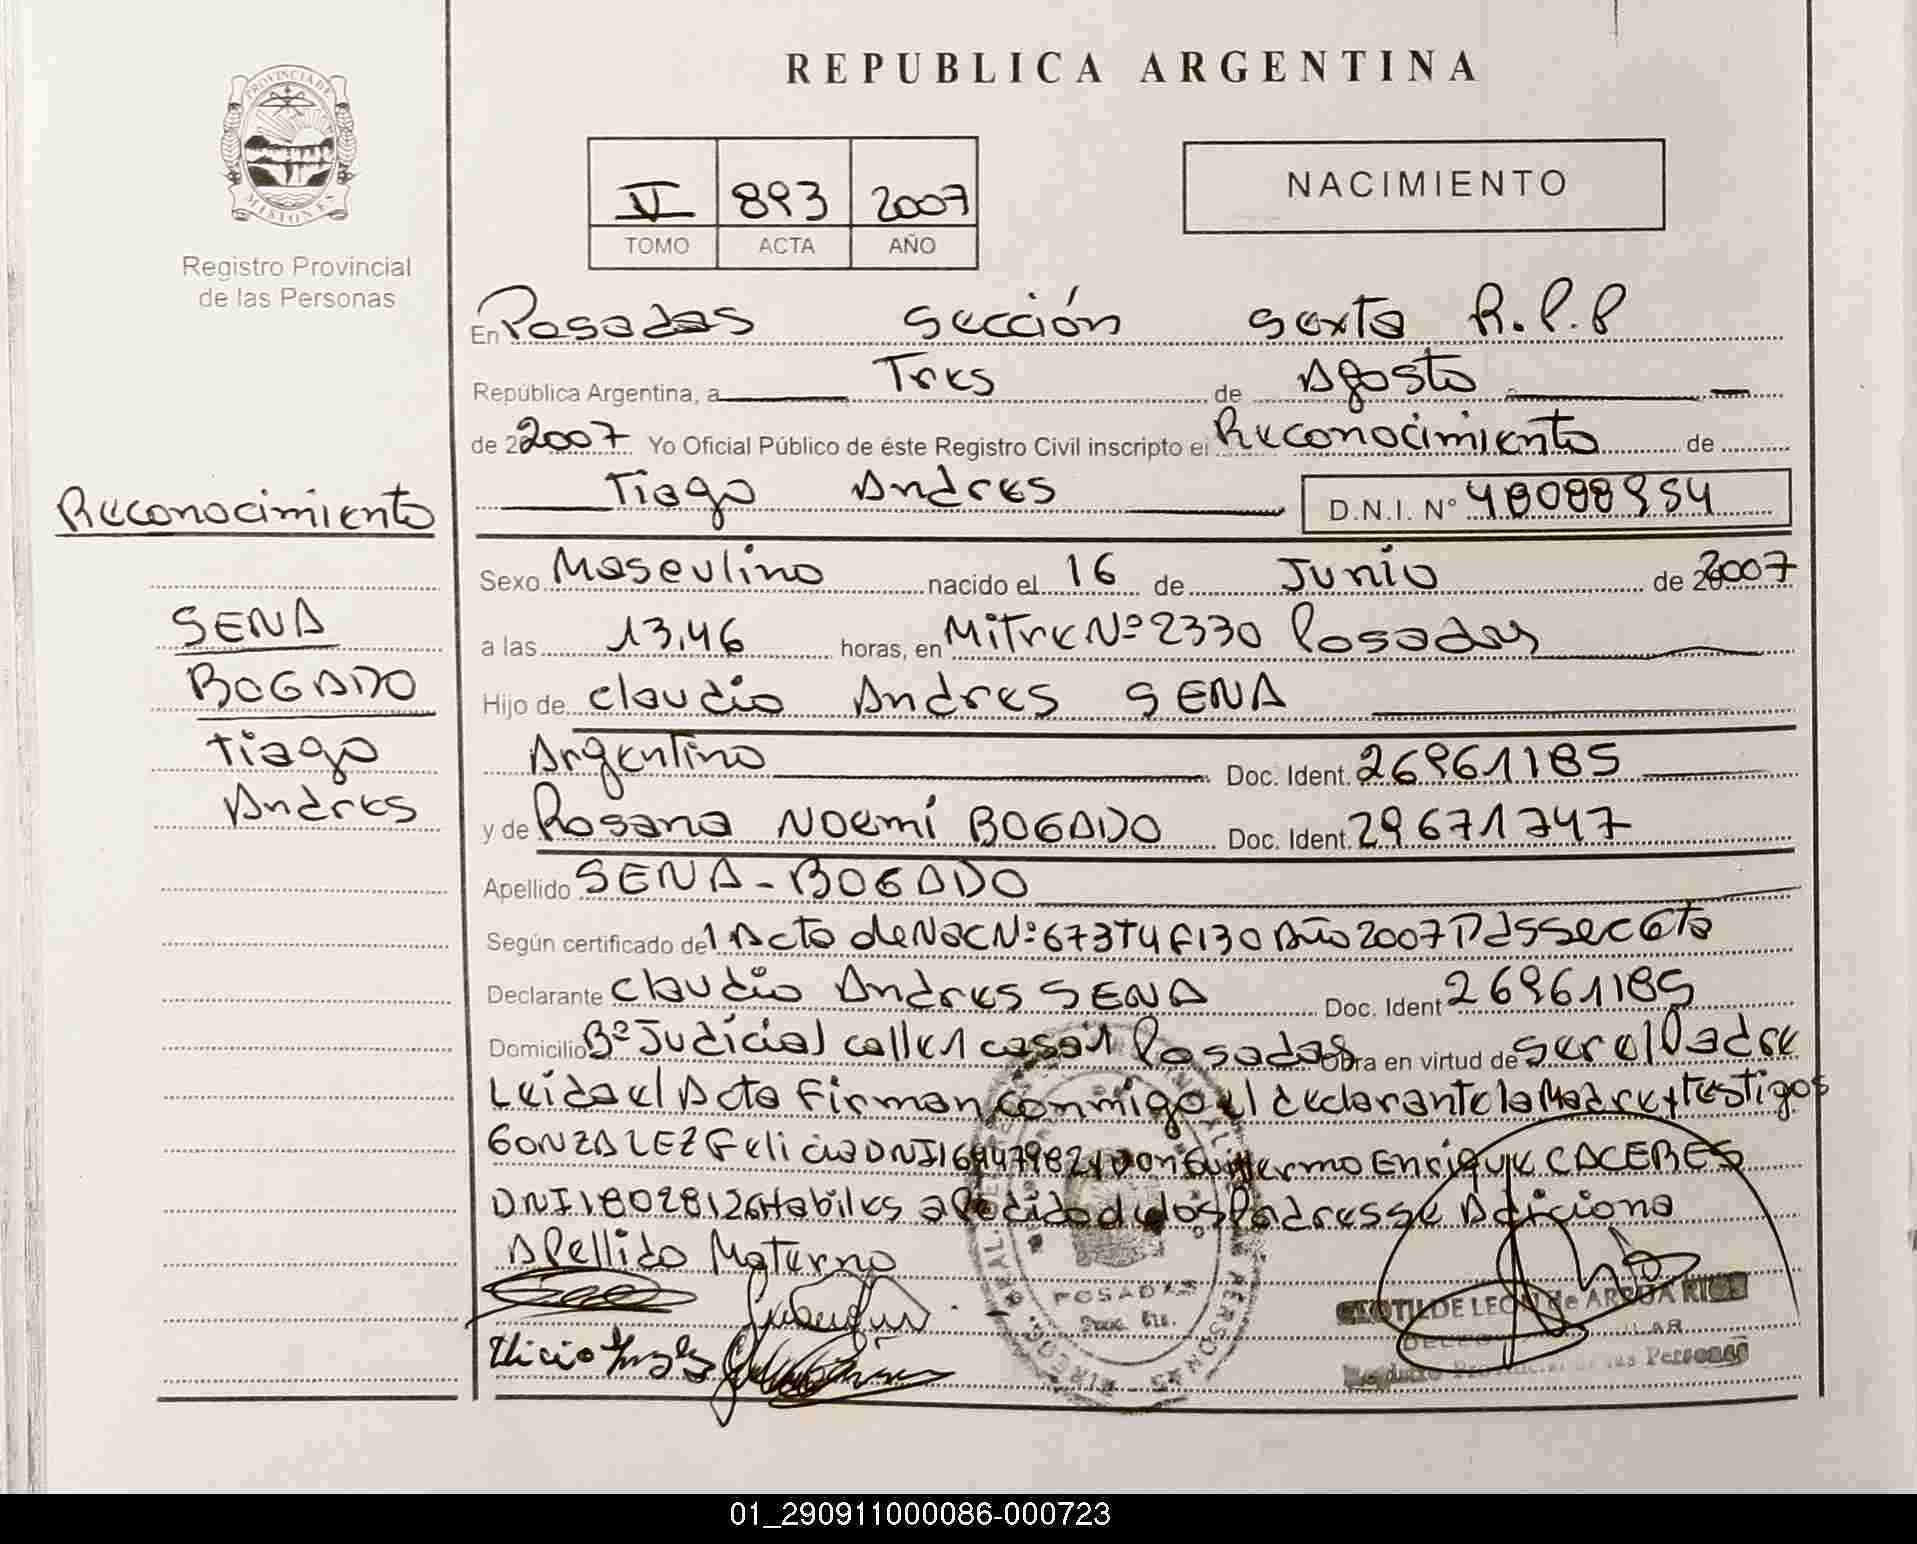 REPUBLICA ARGENTINA
PROVINCIA DE
MISIONES
Registro Provincial
de las Personas
V 893 2007
TOMO ACTA AÑO
NACIMIENTO
En Posadas Sección Sexta R.P.P
República Argentina, a Tres de Agosto
de 2007 Yo Oficial Público de éste Registro Civil inscripto el Reconocimiento de
Tiago Andres D.N.I. Nº 48088954
Reconocimiento
SENA
BOGADO
Tiago
Andres
Sexo Masculino nacido el 16 de Junio de 2007
a las 13,46 horas, en Mitre Nº 2330 Posadas
Hijo de Claudio Andres SENA
Argentino Doc. Ident. 26961185
y de Rosana Noemí BOGADO Doc. Ident. 29671747
Apellido SENA - BOGADO
Según certificado de 1 Acta de Nac Nº 673 T4 F130 Año 2007 Pdas Sec 6ta
Declarante Claudio Andres SENA Doc. Ident 26961185
Domicilio Bº Judicial calle 1 casa 1 Posadas Obra en virtud de Ser el Padre
Leida el Acta Firman conmigo el declarante la Madre y testigos
GONZALEZ Felicia DNI 16947982 y Don Guillermo Enrique CACERES
DNI 18028126 Habiles a Pedido de los Padres se Adiciona
Apellido Materno
POSADAS
CLOTILDE LEON de
Registro Provincial de las Personas
01_290911000086-000723